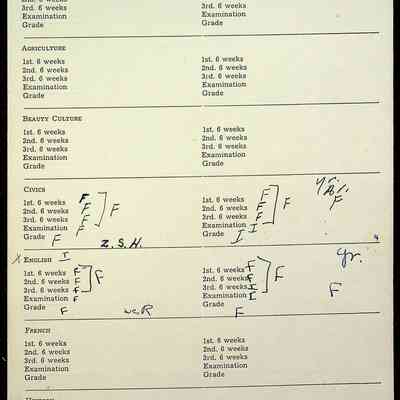 2nd. 6 weeks
3rd. 6 weeks 3rd. 6 weeks
Examination Examination
Grade Grade
AGRICULTURE
1st. 6 weeks 1st. 6 weeks
2nd. 6 weeks 2nd. 6 weeks
3rd. 6 weeks 3rd. 6 weeks
Examination Examination
Grade Grade
BEAUTY CULTURE
1st. 6 weeks 1st. 6 weeks
2nd. 6 weeks 2nd. 6 weeks
3rd. 6 weeks 3rd. 6 weeks
Examination Examination
Grade Grade
CIVICS yr.
1st. 6 weeks F 1st. 6 weeks F
2nd. 6 weeks F F 2nd. 6 weeks F F F
3rd. 6 weeks F 3rd. 6 weeks F
Examination F Examination I
Grade F Z.S.H. Grade I
X ENGLISH I yr.
1st. 6 weeks F 1st. 6 weeks F
2nd. 6 weeks F F 2nd. 6 weeks F F
3rd. 6 weeks F 3rd. 6 weeks I F
Examination F Examination I
Grade F WCR Grade F
FRENCH
1st. 6 weeks 1st. 6 weeks
2nd. 6 weeks 2nd. 6 weeks
3rd. 6 weeks 3rd. 6 weeks
Examination Examination
Grade Grade